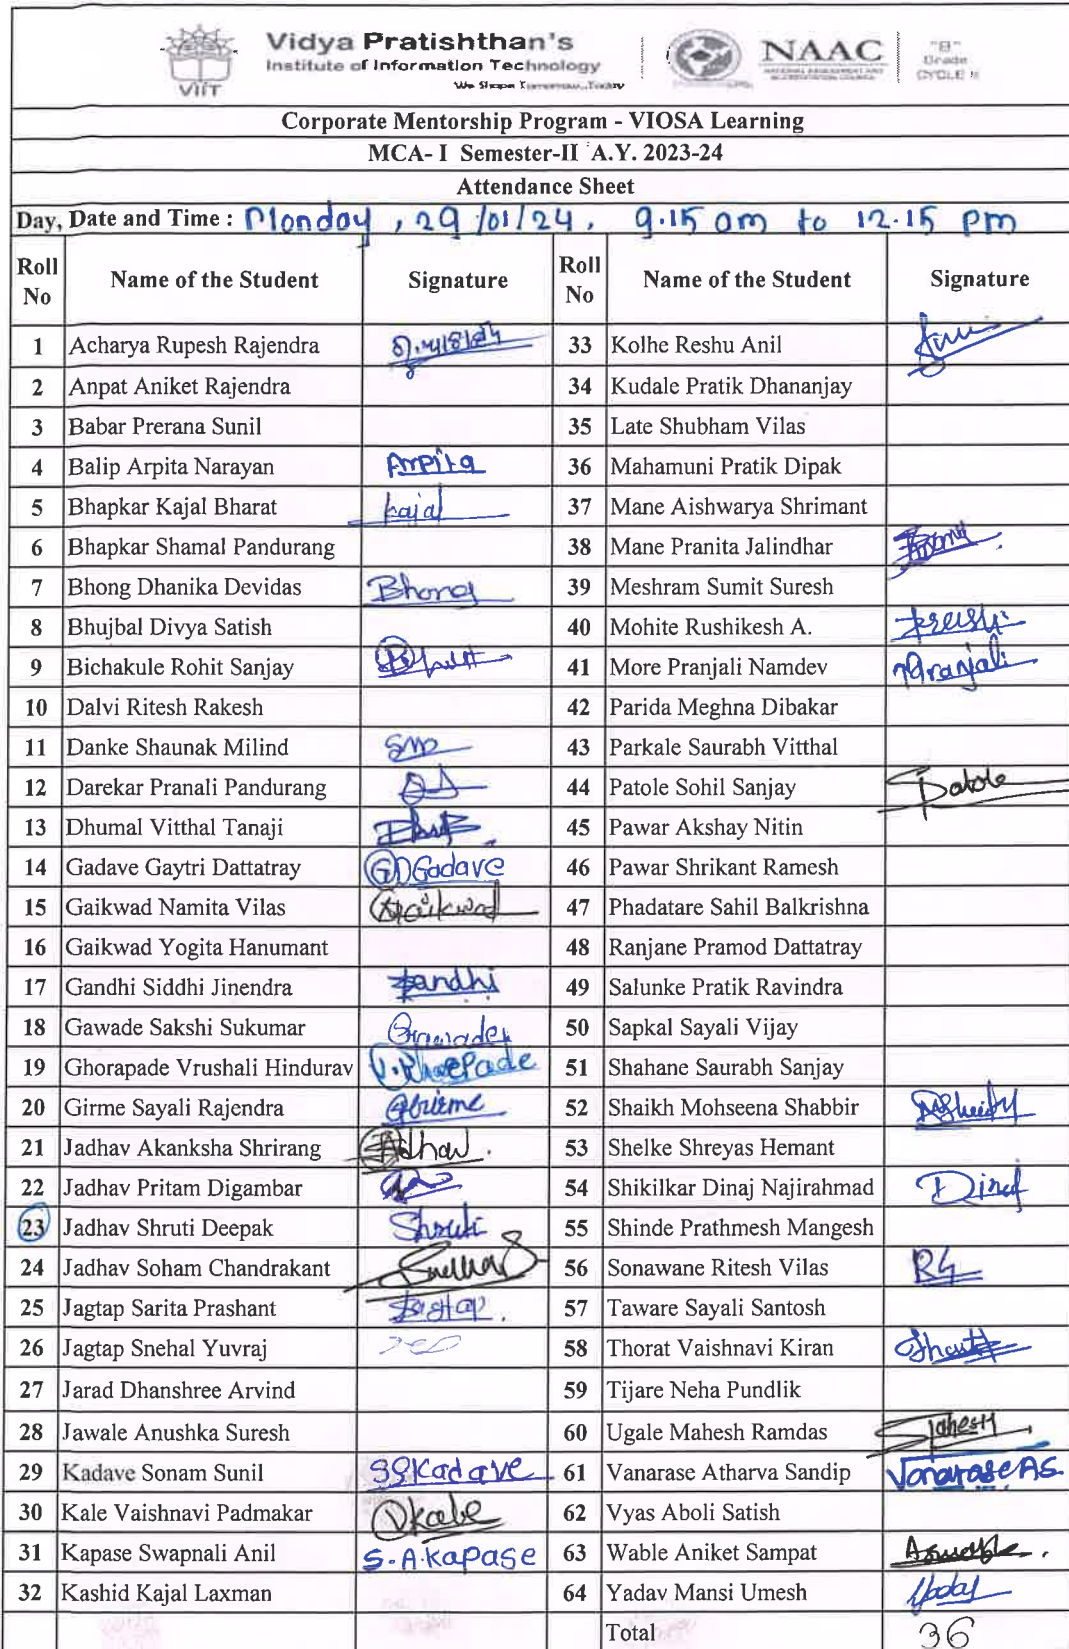 Vidya Pratishthan's
Institute of Information Technology
We Shape Tomorrow...Today
VIIT
NAAC
NATIONAL ASSESSMENT AND
ACCREDITATION COUNCIL
"B"
Grade
CYCLE II
Corporate Mentorship Program - VIOSA Learning
MCA- I Semester-II A.Y. 2023-24
Attendance Sheet
Day, Date and Time : Monday , 29/01/24 , 9.15 am to 12.15 pm
Roll No Name of the Student Signature Roll No Name of the Student Signature
1 Acharya Rupesh Rajendra 33 Kolhe Reshu Anil
2 Anpat Aniket Rajendra 34 Kudale Pratik Dhananjay
3 Babar Prerana Sunil 35 Late Shubham Vilas
4 Balip Arpita Narayan Arpita 36 Mahamuni Pratik Dipak
5 Bhapkar Kajal Bharat kajal 37 Mane Aishwarya Shrimant
6 Bhapkar Shamal Pandurang 38 Mane Pranita Jalindhar
7 Bhong Dhanika Devidas Bhong 39 Meshram Sumit Suresh
8 Bhujbal Divya Satish 40 Mohite Rushikesh A.
9 Bichakule Rohit Sanjay 41 More Pranjali Namdev Pranjali
10 Dalvi Ritesh Rakesh 42 Parida Meghna Dibakar
11 Danke Shaunak Milind 43 Parkale Saurabh Vitthal
12 Darekar Pranali Pandurang 44 Patole Sohil Sanjay Patole
13 Dhumal Vitthal Tanaji 45 Pawar Akshay Nitin
14 Gadave Gaytri Dattatray GDGadave 46 Pawar Shrikant Ramesh
15 Gaikwad Namita Vilas Gaikwad 47 Phadatare Sahil Balkrishna
16 Gaikwad Yogita Hanumant 48 Ranjane Pramod Dattatray
17 Gandhi Siddhi Jinendra Gandhi 49 Salunke Pratik Ravindra
18 Gawade Sakshi Sukumar Gawade 50 Sapkal Sayali Vijay
19 Ghorapade Vrushali Hindurav V.Ghorpade 51 Shahane Saurabh Sanjay
20 Girme Sayali Rajendra Girme 52 Shaikh Mohseena Shabbir
21 Jadhav Akanksha Shrirang 53 Shelke Shreyas Hemant
22 Jadhav Pritam Digambar 54 Shikilkar Dinaj Najirahmad Dinaj
23 Jadhav Shruti Deepak Shruti 55 Shinde Prathmesh Mangesh
24 Jadhav Soham Chandrakant 56 Sonawane Ritesh Vilas
25 Jagtap Sarita Prashant Jagtap. 57 Taware Sayali Santosh
26 Jagtap Snehal Yuvraj 58 Thorat Vaishnavi Kiran
27 Jarad Dhanshree Arvind 59 Tijare Neha Pundlik
28 Jawale Anushka Suresh 60 Ugale Mahesh Ramdas
29 Kadave Sonam Sunil SSKadave 61 Vanarase Atharva Sandip Vanarase AS.
30 Kale Vaishnavi Padmakar Vkale 62 Vyas Aboli Satish
31 Kapase Swapnali Anil S.A.Kapase 63 Wable Aniket Sampat
32 Kashid Kajal Laxman 64 Yadav Mansi Umesh Yadav
Total 36